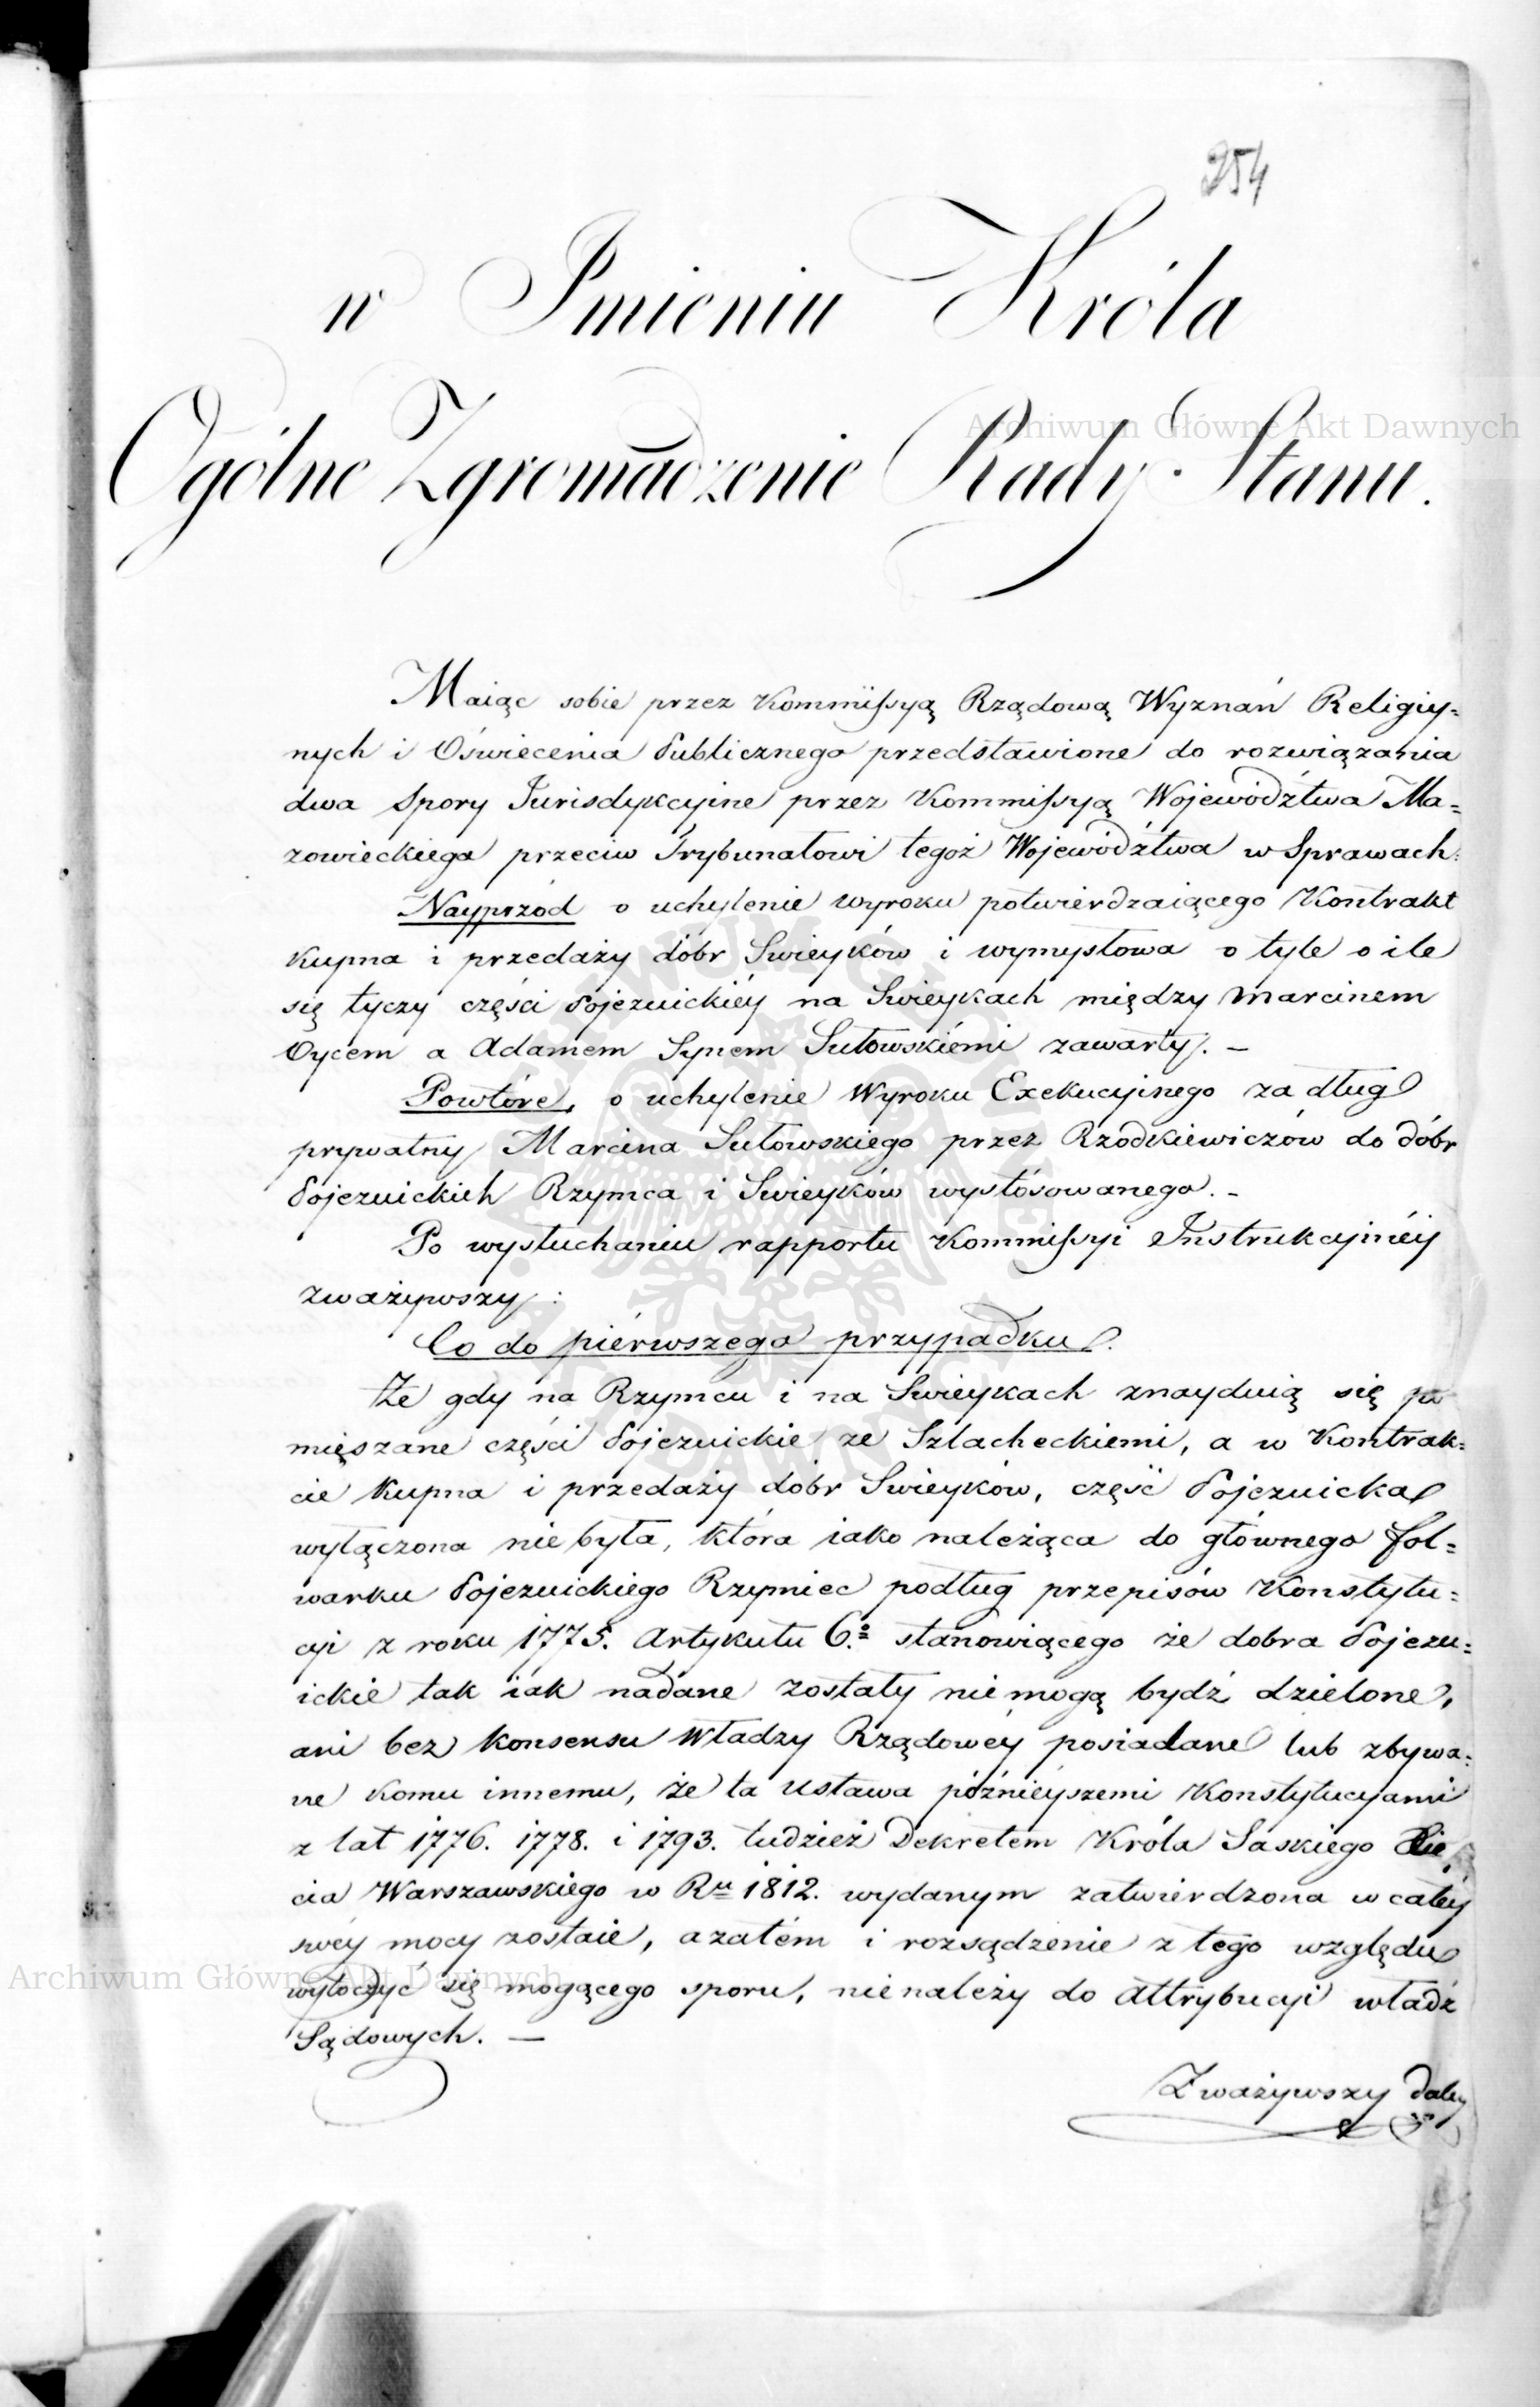 254
w Imieniu Króla
Ogólne Zgromadzenie Rady Stanu.
Maiąc sobie przez Kommissyą Rządową Wyznań Religiy=
nych i Oświecenia Publicznego przedstawione do rozwiązania
dwa Spory Jurisdykcyine przez Kommissyą Województwa Ma=
zowieckiego przeciw Trybunałowi tegoż Województwa w Sprawach:
Nayprzód o uchylenie wyroku potwierdzaiącego Kontrakt
kupna i przedaży dóbr Swieyków i wymysłowa o tyle o ile
się tyczy części Pojezuickiéy na Swieykach między Marcinem
Oycem a Adamem Synem Sutowskiémi zawarty. —
Powtóre, o uchylenie Wyroku Exekucyinego za dług
prywatny Marcina Sutowskiego przez Rzodkiewiczów do dóbr
Pojezuickich Rzymca i Swieyków wystósowanego. —
Po wysłuchaniu rapportu Kommissyi Instrukcyinéy
zważywszy:
Co do piérwszego przypadku.
Że gdy na Rzymcu i na Swieykach znayduią się po
mięszane części Pojezuickie ze Szlacheckiemi, a w Kontrak=
cie Kupna i przedaży dóbr Swieyków, część Pojezuicka
wyłączona nie była, która iako należąca do głównego fol=
warku Pojezuickiego Rzymiec podług przepisów Konstytu=
cyi z roku 1775. Artykułu 6.º stanowiącego że dobra Pojezu=
ickie tak iak nadane zostały nie mogą bydź dzielone,
ani bez konsensu Władzy Rządowéy posiadane lub zbywa=
ne komu innemu, że ta Ustawa późnieyszemi Konstytucyami
z lat 1776. 1778. i 1793. tudzież Dekretem Króla Saskiego Xię
cia Warszawskiego w Ru 1812. wydanym zatwierdzona w całéy
swéy mocy zostaie, a zatém i rozsądzenie z tego względu
wytoczyć się mogącego sporu, nie należy do attrybucyi władz
Sądowych. —
Zważywszy daley
Archiwum Główne Akt Dawnych
Archiwum Główne Akt Dawnych